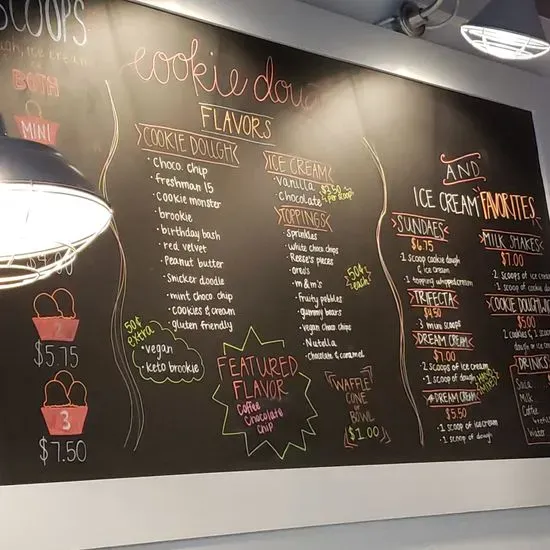 SCOOPS
BOTH
MINI
2
$5.75
3
$7.50
cookie dou
FLAVORS
COOKIE DOUGH
· choco. chip
· freshman 15
· cookie monster
· brookie
· birthday bash
· red velvet
· Peanut butter
· snicker doodle
· mint choco chip
· cookies & cream
· gluten friendly
50¢ extra
· vegan
· keto brookie
ICE CREAM
· vanilla
· chocolate
$3.50
per scoop
TOPPINGS
· sprinkles
· white choco chips
· Reese's pieces
· oreo's
· m&m's
· fruity pebbles
· gummy bears
· vegan choco chips
· Nutella
· chocolate & caramel
50¢
each
FEATURED
FLAVOR
Coffee
Chocolate
Chip
WAFFLE
CONE
or
BOWL
$1.00
AND
ICE CREAM FAVORITES
SUNDAES
$6.75
1 scoop cookie dough
& ice cream
1 topping whipped cream
TRIFECTA
$4.50
3 mini scoops
DREAM CREAM
$7.00
· 2 scoops of ice cream
· 1 scoop of dough
DREAM CREAM
$5.50
· 1 scoop of ice cream
· 1 scoop of dough
MILK SHAKES
$7.00
· 2 scoops of ice
· 1 scoop of cookie d
COOKIE DOUGH
$5.00
2 cookies & 1 scoop
dough or ice
DRINKS
Soda
Milk
Coffee
Water